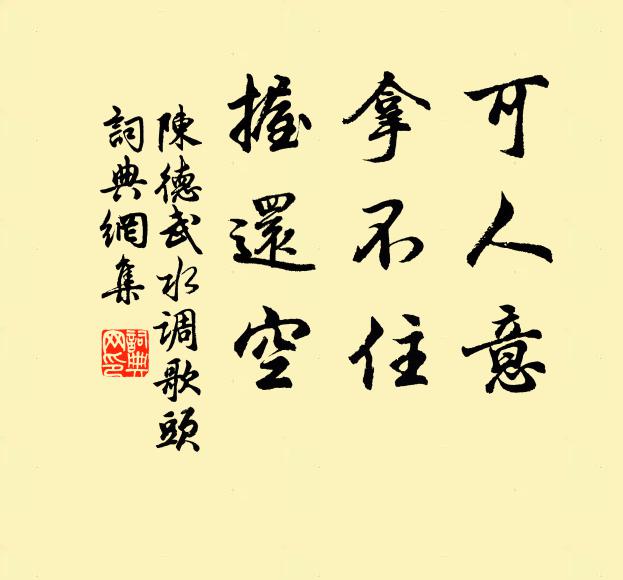 可人意
拿不住
握還空
陳德武水调歌頭
詞典網集
詞典
网印